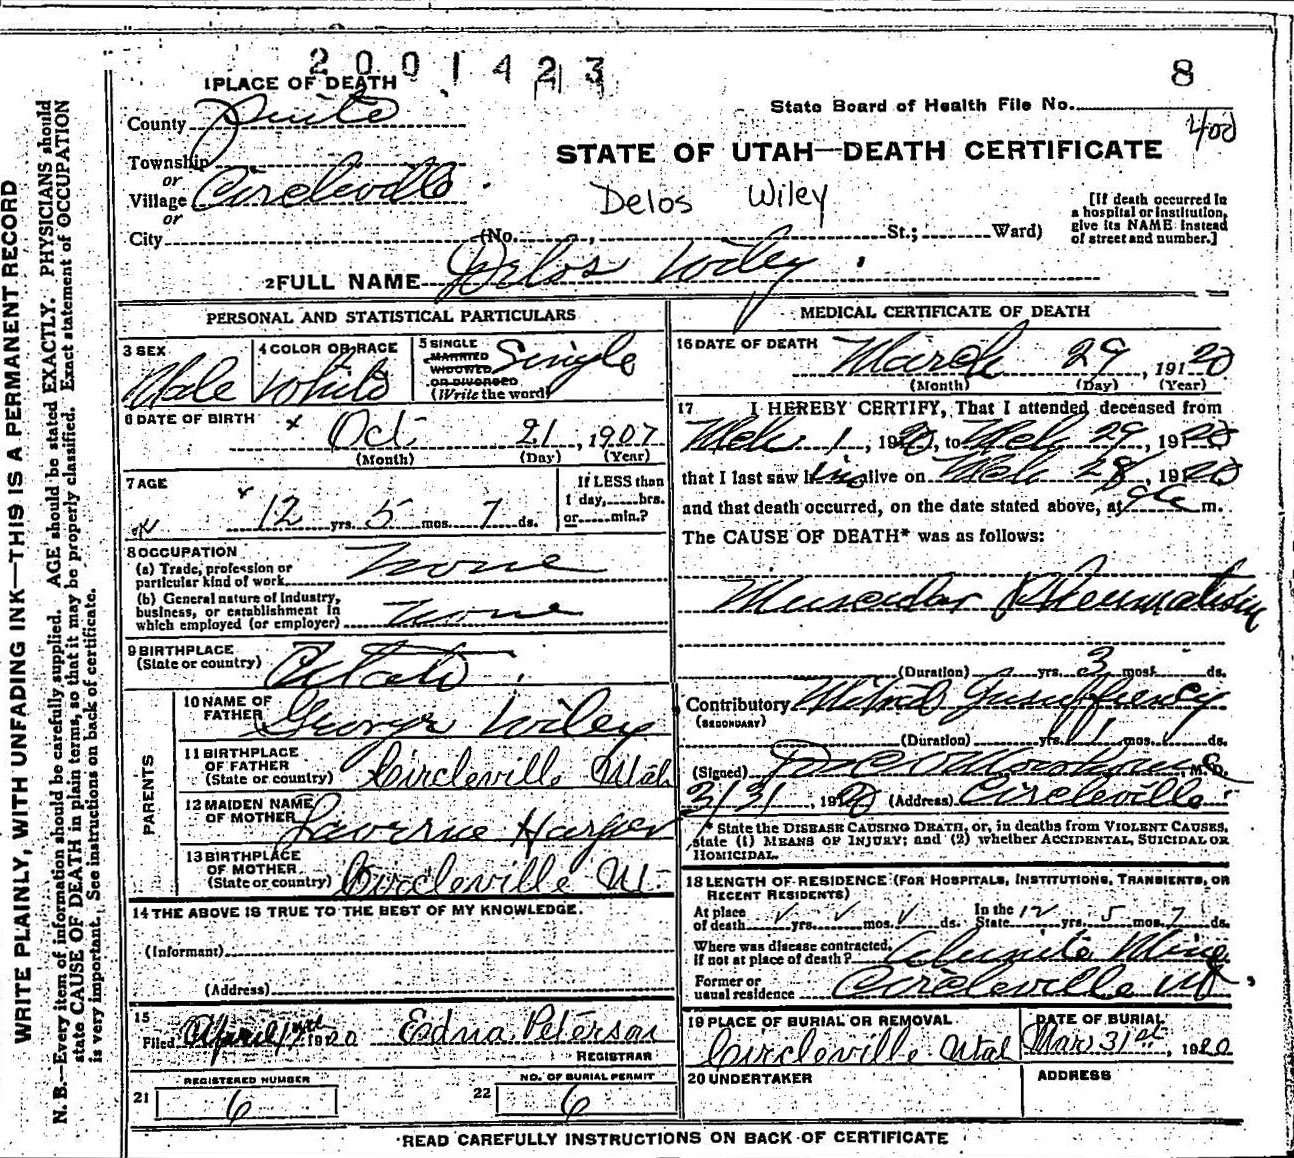 2001423
8
1 PLACE OF DEATH
State Board of Health File No.
400
County Piute
STATE OF UTAH—DEATH CERTIFICATE
Township
or
Village Circleville
Delos Wiley
or
[If death occurred in a hospital or institution, give its NAME instead of street and number.]
City (No. , St.; Ward)
2 FULL NAME Delos Wiley
PERSONAL AND STATISTICAL PARTICULARS
3 SEX Male
4 COLOR OR RACE White
5 SINGLE MARRIED WIDOWED OR DIVORCED (Write the word) Single
6 DATE OF BIRTH x Oct 21, 1907
(Month) (Day) (Year)
7 AGE x
If LESS than
1 day, hrs.
or min.?
12 yrs. 5 mos. 7 ds.
8 OCCUPATION
(a) Trade, profession or
particular kind of work None
(b) General nature of Industry,
business, or establishment in
which employed (or employer) None
9 BIRTHPLACE
(State or country) Utah
PARENTS
10 NAME OF
FATHER George Wiley
11 BIRTHPLACE
OF FATHER
(State or country) Circleville Utah
12 MAIDEN NAME
OF MOTHER Laverne Harper
13 BIRTHPLACE
OF MOTHER
(State or country) Circleville Ut
14 THE ABOVE IS TRUE TO THE BEST OF MY KNOWLEDGE.
(Informant)
(Address)
15
Filed April 1920 Edna Peterson
REGISTRAR
REGISTERED NUMBER
21 6
NO. OF BURIAL PERMIT
22 6
MEDICAL CERTIFICATE OF DEATH
16 DATE OF DEATH
March 29, 1920
(Month) (Day) (Year)
17 I HEREBY CERTIFY, That I attended deceased from
Mch 1, 1920, to Mch 29, 1920
that I last saw him alive on Mch 28, 1920
and that death occurred, on the date stated above, at m.
The CAUSE OF DEATH* was as follows:
Muscular Rheumatism
(Duration) yrs. 3 mos. ds.
Contributory Mitral Insuffiency
(SECONDARY)
(Duration) yrs. 1 mos. ds.
(Signed) M. D.
3/31, 1920 (Address) Circleville
* State the DISEASE CAUSING DEATH, or, in deaths from VIOLENT CAUSES,
state (1) MEANS OF INJURY; and (2) whether ACCIDENTAL, SUICIDAL OR
HOMICIDAL.
18 LENGTH OF RESIDENCE (FOR HOSPITALS, INSTITUTIONS, TRANSIENTS, OR
RECENT RESIDENTS)
At place of death yrs. mos. ds. In the State 12 yrs. 5 mos. 7 ds.
Where was disease contracted,
if not at place of death? Alunite Mine
Former or
usual residence Circleville Ut
19 PLACE OF BURIAL OR REMOVAL
Circleville Utah
DATE OF BURIAL
Mar 31st, 1920
20 UNDERTAKER
ADDRESS
READ CAREFULLY INSTRUCTIONS ON BACK OF CERTIFICATE
WRITE PLAINLY, WITH UNFADING INK—THIS IS A PERMANENT RECORD
N. B.—Every item of information should be carefully supplied. AGE should be stated EXACTLY. PHYSICIANS should
state CAUSE OF DEATH in plain terms, so that it may be properly classified. Exact statement of OCCUPATION
is very important. See instructions on back of certificate.